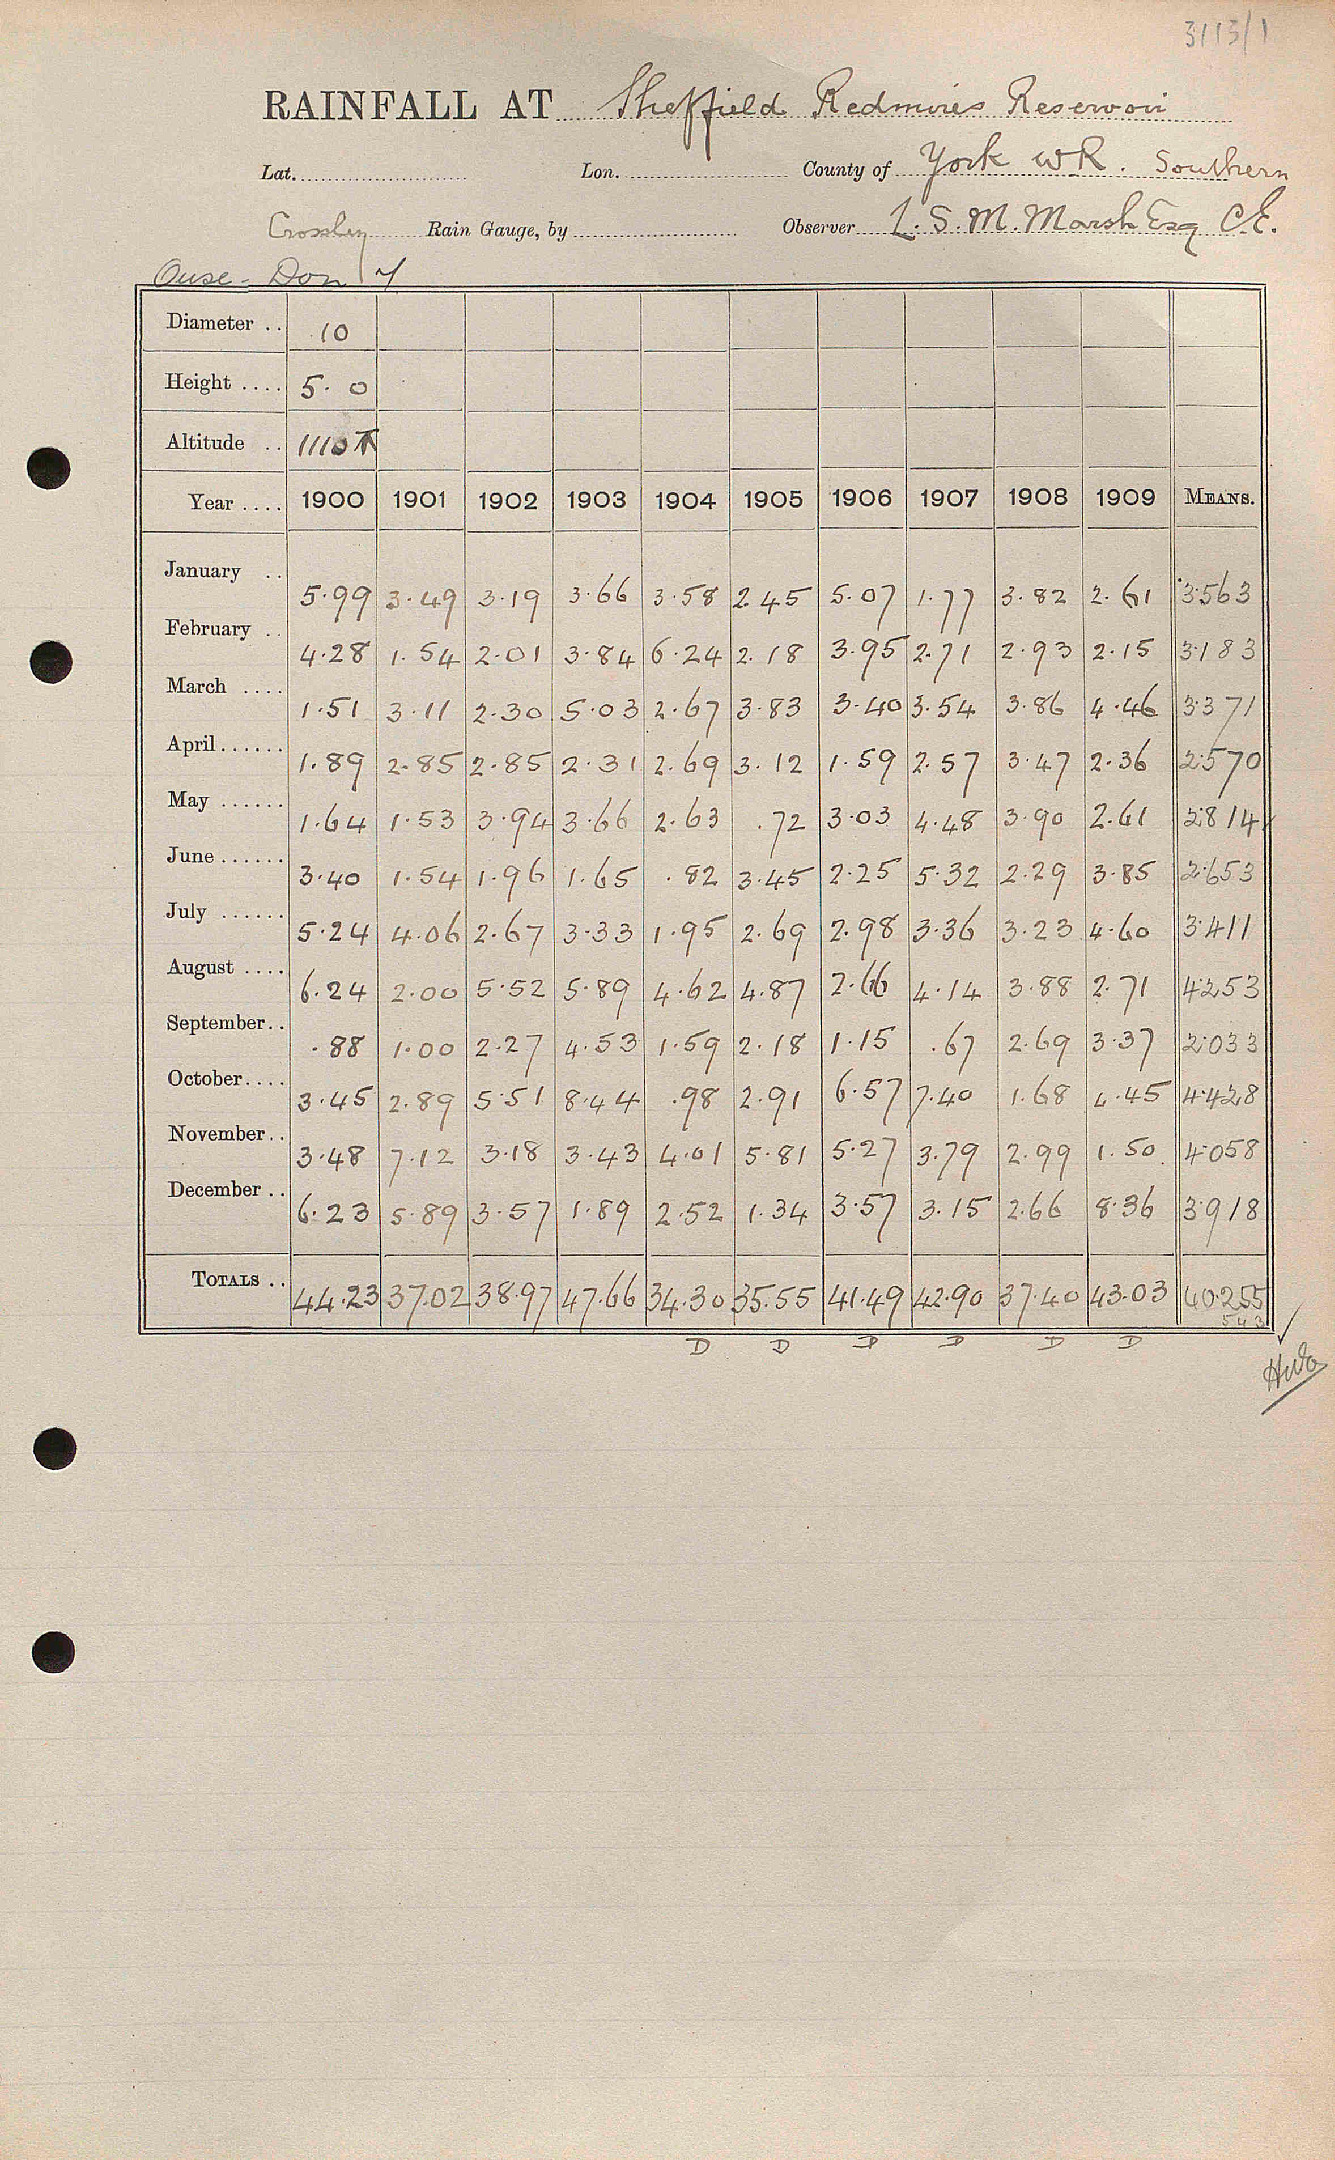 3113/1
RAINFALL AT Sheffield Redmires Reservoir
Lat. Lon. County of York W.R. Southern
Crossley Rain Gauge, by Observer L. S. M. Marsh Esq C.E.
Ouse - Don
Diameter .. 10
Height .... 5. 0
Altitude .. 1110
Year .... 1900 1901 1902 1903 1904 1905 1906 1907 1908 1909 MEANS.
January .. 5.99 3.49 3.19 3.66 3.58 2.45 5.07 1.77 3.82 2.61 3.563
February .. 4.28 1.54 2.01 3.84 6.24 2.18 3.95 2.71 2.93 2.15 3.183
March .... 1.51 3.11 2.30 5.03 2.67 3.83 3.40 3.54 3.86 4.46 3.371
April ...... 1.89 2.85 2.85 2.31 2.69 3.12 1.59 2.57 3.47 2.36 2.570
May ...... 1.64 1.53 3.94 3.66 2.63 .72 3.03 4.48 3.90 2.61 2.814
June ...... 3.40 1.54 1.96 1.65 .82 3.45 2.25 5.32 2.29 3.85 2.653
July ...... 5.24 4.06 2.67 3.33 1.95 2.69 2.98 3.36 3.23 4.60 3.411
August .... 6.24 2.00 5.52 5.89 4.62 4.87 2.66 4.14 3.88 2.71 4.253
September.. .88 1.00 2.27 4.53 1.59 2.18 1.15 .67 2.69 3.37 2.033
October.... 3.45 2.89 5.51 8.44 .98 2.91 6.57 7.40 1.68 4.45 4.428
November.. 3.48 7.12 3.18 3.43 4.01 5.81 5.27 3.79 2.99 1.50 4.058
December .. 6.23 5.89 3.57 1.89 2.52 1.34 3.57 3.15 2.66 8.36 3.918
TOTALS .. 44.23 37.02 38.97 47.66 34.30 35.55 41.49 42.90 37.40 43.03 40.255
543
D D D D D D